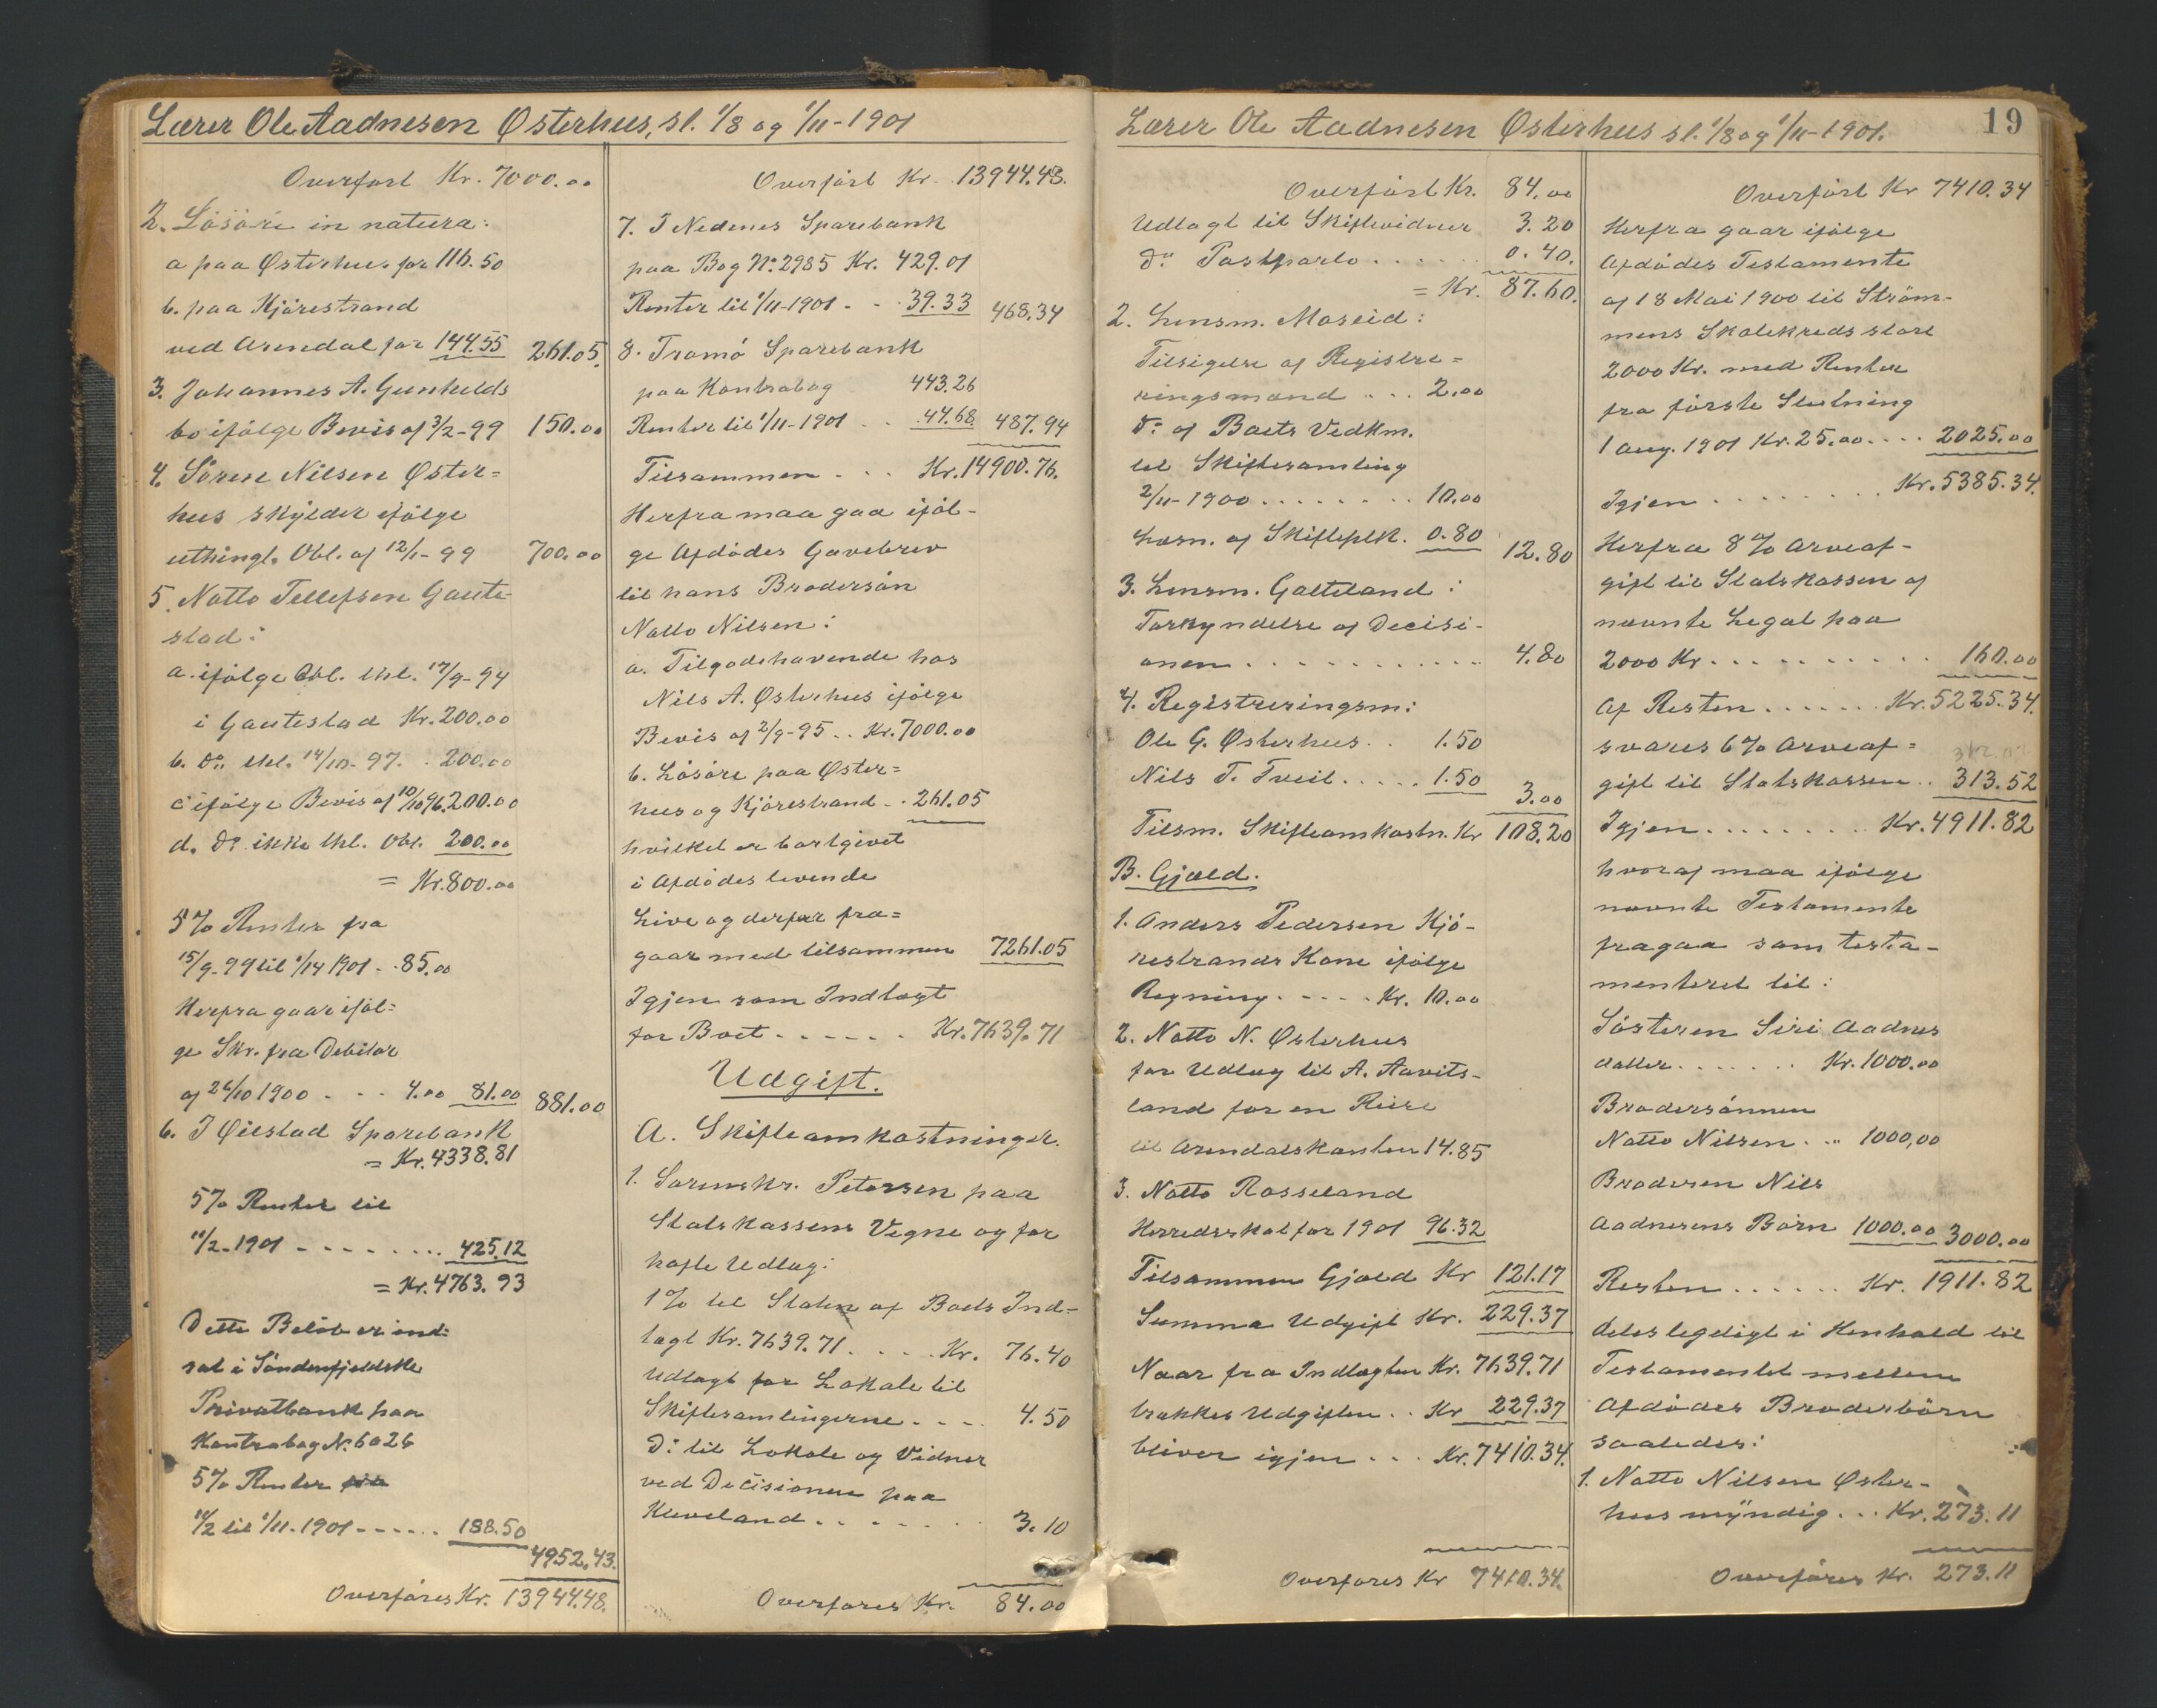 Lærer Ole Aadnesen Østerhus, sl. 1/8 og 1/11-1901
Overført Kr. 7000.00
2. Løsøre in natura:
a paa Østerhus for 116.50
b. paa Kjørestrand
ved Arendal for 144.55 261.05.
3. Johannes A. Gunhelds
bo ifølge Bevis af 3/2-99 150.00
4. Søren Nilsen Øster=
hus skylder ifølge
uthingl. Obl. af 12/1-99 700.00
5. Notto Tellefsen Gaute-
stad:
a. ifølge Obl. thl. 17/9-94
i Gautestad Kr. 200.00
b. Do. thl. 14/10-97. . 200.00
c ifølge Bevis af 10/10 96. 200.00
d. Do. ikke thl. Obl. 200.00
= Kr. 800.00
5% Renter fra
15/9-99 til 1/11 1901 . . 85.00
Herfra gaar iføl=
ge Skr. fra Debitor
af 26/10 1900 . . . 4.00 81.00 881.00
6. I Øiestad Sparebank
= Kr. 4338.81
5% Renter til
11/2-1901 . . . . . . . 425.12
= Kr. 4763.93
Dette Beløb er ind=
sat i Søndenfjeldske
Privatbank paa
Kontrabog No. 6026
5% Renter fra
11/2 til 1/11-1901 . . . . . . 188.50
4952.43.
Overføres Kr. 13944.48.
Overført Kr. 13944.48.
7. I Nedenes Sparebank
paa Bog No. 2985 Kr. 429.01
Renter til 1/11-1901 . . . 39.33 468.34
8. Tromø Sparebank
paa Kontrabog 443.26
Renter til 1/11-1901 . . . 44.68 487.94
Tilsammen . . . Kr. 14900.76.
Herfra maa gaa iføl-
ge Afdødes Gavebrev
til hans Brodersøn
Notto Nilsen:
a. Tilgodehavende hos
Nils A. Østerhus ifølge
Bevis af 2/9-95 . . Kr. 7000.00
b. Løsøre paa Øster=
hus og Kjørestrand . . 261.05
hvilket er bortgivet
i Afdødes levende
Live og derfor fra=
gaar med tilsammen 7261.05
Igjen som Indtægt
for Boet . . . . . . Kr. 7639.71
Udgift.
A. Skifteomkostninger.
1. Sorenskr. Petersen paa
Statskassens Vegne og for
hafte Udlæg:
1% til Staten af Boets Ind=
tægt Kr. 7639.71 . . . . Kr. 76.40
Udlagt for Lokale til
Skiftesamlingerne . . . . 4.50
Do. til Lokale og Vidner
ved Decisionen paa
Kleveland . . . . . . . 3.10
Overføres Kr. 84.00
Lærer Ole Aadnesen Østerhus sl. 1/8 og 1/11-1901. 19
Overført Kr. 84.00
Udlagt til Skiftevidner 3.20
Do. Postporto . . . . . . 0.40.
= Kr. 87.60.
2. Lensm. Moseid:
Tilsigelse af Registre=
ringsmænd . . . 2.00
Do. af Boets Vedkm.
til Skiftesamling
2/11-1900 . . . . . . . . 10.00
Læsn. af Skifteplk. 0.80 12.80
3. Lensm. Galteland:
Forkyndelse af Decisi-
onen . . . . . . . . . . . . 4.80
4. Registreringsm:
Ole G. Østerhus . . 1.50
Nils T. Tveit . . . . . 1.50 3.00
Tilsm. Skifteomkostn. Kr 108.20
B. Gjæld.
1. Anders Pedersen Kjø-
restrands Kone ifølge
Regning . . . . . Kr. 10.00
2. Notto N. Østerhus
for Udlæg til A. Aavits-
land for en Reise
til Arendalskanten 14.85
3. Notto Rosseland
Herredsskat for 1901 96.32
Tilsammen Gjæld Kr 121.17
Summa Udgift Kr. 229.37
Naar fra Indtægten Kr. 7639.71
trækkes Udgiften . . Kr 229.37
bliver igjen . . . Kr. 7410.34.
Overføres Kr 7410.34.
Overført Kr 7410.34
Herfra gaar ifølge
Afdødes Testamente
af 18 Mai 1900 til Strøm-
mens Skolekreds stort
2000 Kr. med Renter
fra første Slutning
1 aug. 1901 Kr. 25.00 . . . . 2025.00
Igjen . . . . . . . . Kr. 5385.34.
Herfra 8% Arveaf-
gift til Statskassen af
nævnte Legat paa
2000 Kr . . . . . . . . . . 160.00
Af Resten . . . . . . Kr. 5225.34.
svares 6% Arveaf=
gift til Statskassen . . 313.52
Igjen . . . . . . . . . Kr. 4911.82
hvoraf maa ifølge
nævnte Testamente
fragaa som testa-
menteret til:
Søsteren Siri Aadnes
datter . . . . . . . Kr. 1000.00
Brodersønnen
Notto Nilsen . . " 1000,00
Broderen Nils
Aadnesens Børn 1000.00 3000.00
Resten . . . . . . Kr. 1911.82
deles ligeligt i Henhold til
Testamentet mellem
Afdødes Broderbørn
saaledes:
1. Notto Nilsen Øster-
hus myndig . . . Kr. 273.11
Overføres Kr. 273.11